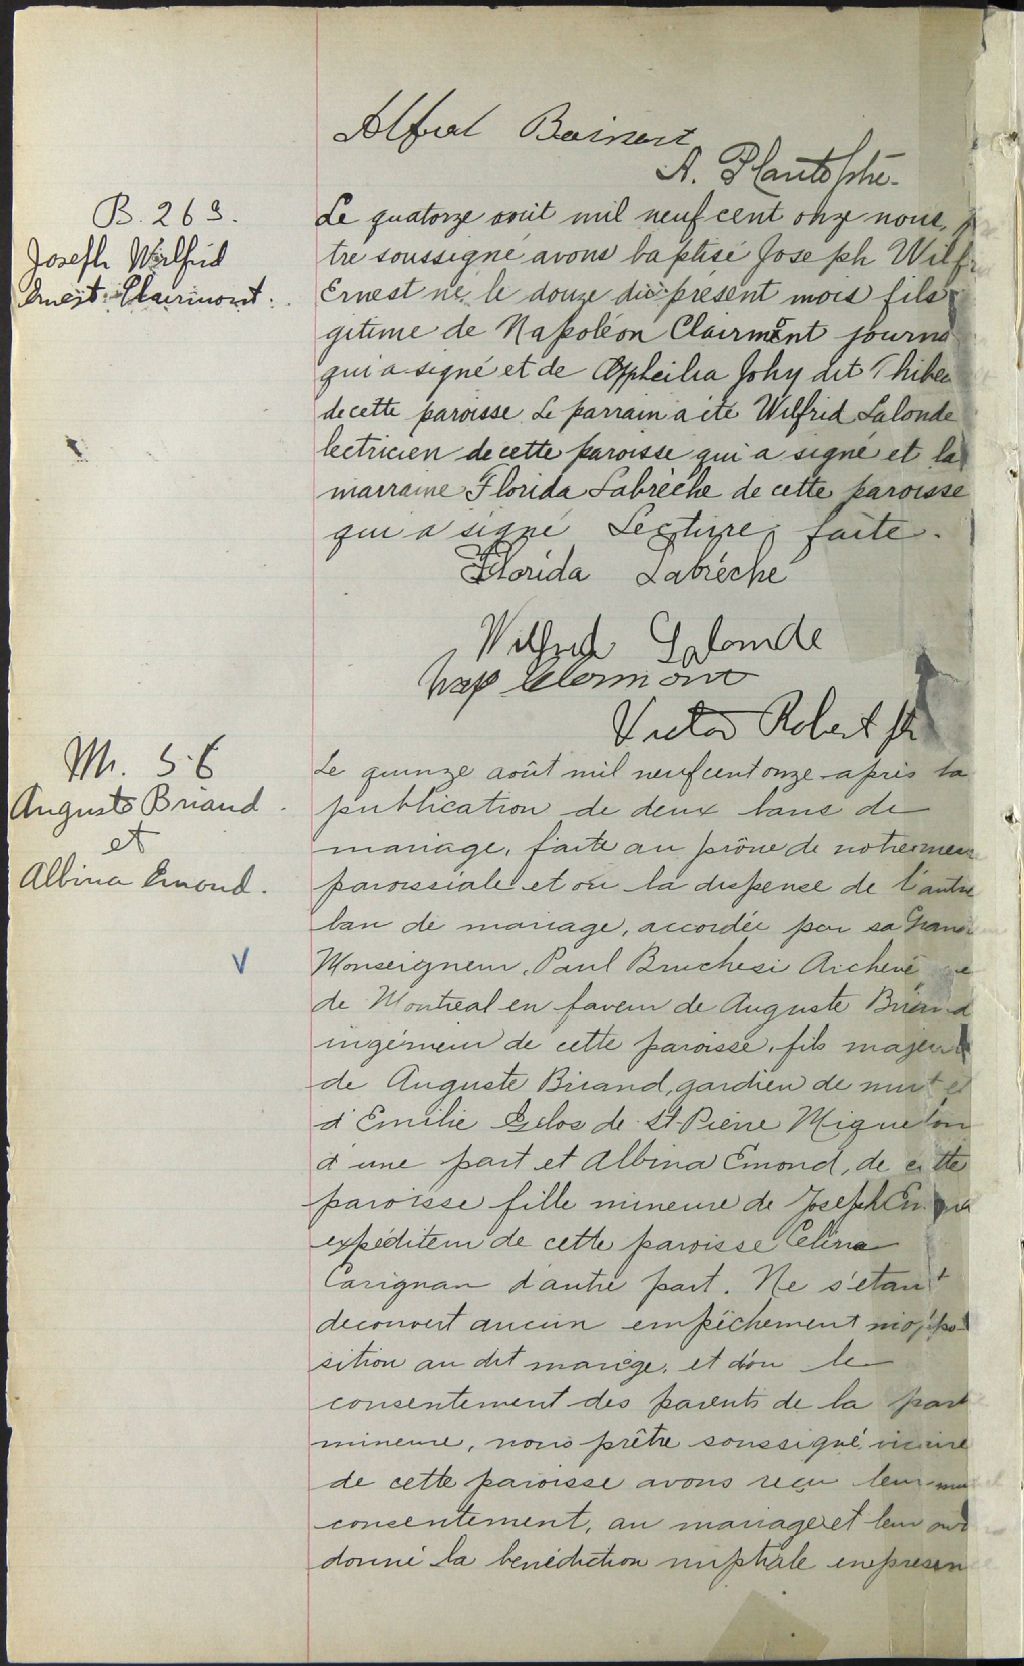 Alfred Boisvert
A. Plante ptre.
B. 263.
Joseph Wilfrid
Ernest Clairmont.
Le quatorze août mil neuf cent onze nous, p
tre soussigné avons baptisé Joseph Wilfr
Ernest né le douze du présent mois fils
gitime de Napoléon Clairmont journa
qui a signé et de Joly dit Thibea
de cette paroisse Le parrain a été Wilfrid Lalonde
lectricien de cette paroisse qui a signé et la
marraine Florida Labrèche de cette paroisse
qui a signé Lecture faite.
Florida Labrèche
Wilfrid Lalonde
Nap Clermont
Victor Robert ptr
M. 56
Auguste Briand
et
Albina Emond.
V
Le quinze août mil neuf cent onze après la
publication de deux bans de
mariage, faite au prône de notre messe
paroissiale et vu la dispense de l'autre
ban de mariage, accordée par sa Grandeur
Monseigneur, Paul Bruchesi Archevêque
de Montreal en faveur de Auguste Briand
ingénieur de cette paroisse, fils majeur
de Auguste Briand, gardien de nuit et
d'Emilie de St-Pierre Miquelon
d'une part et Albina Emond, de cette
paroisse fille mineure de Joseph Emond
expéditeur de cette paroisse Celina
Carignan d'autre part. Ne s'étant
decouvert aucun empêchement ni oppo-
sition au dit mariage, et d'ou le
consentement des parents de la part
mineure, nous prêtre soussigné vicaire
de cette paroisse avons reçu leur mutuel
consentement, au mariage et leur avons
donné la bénédiction nuptiale en presence